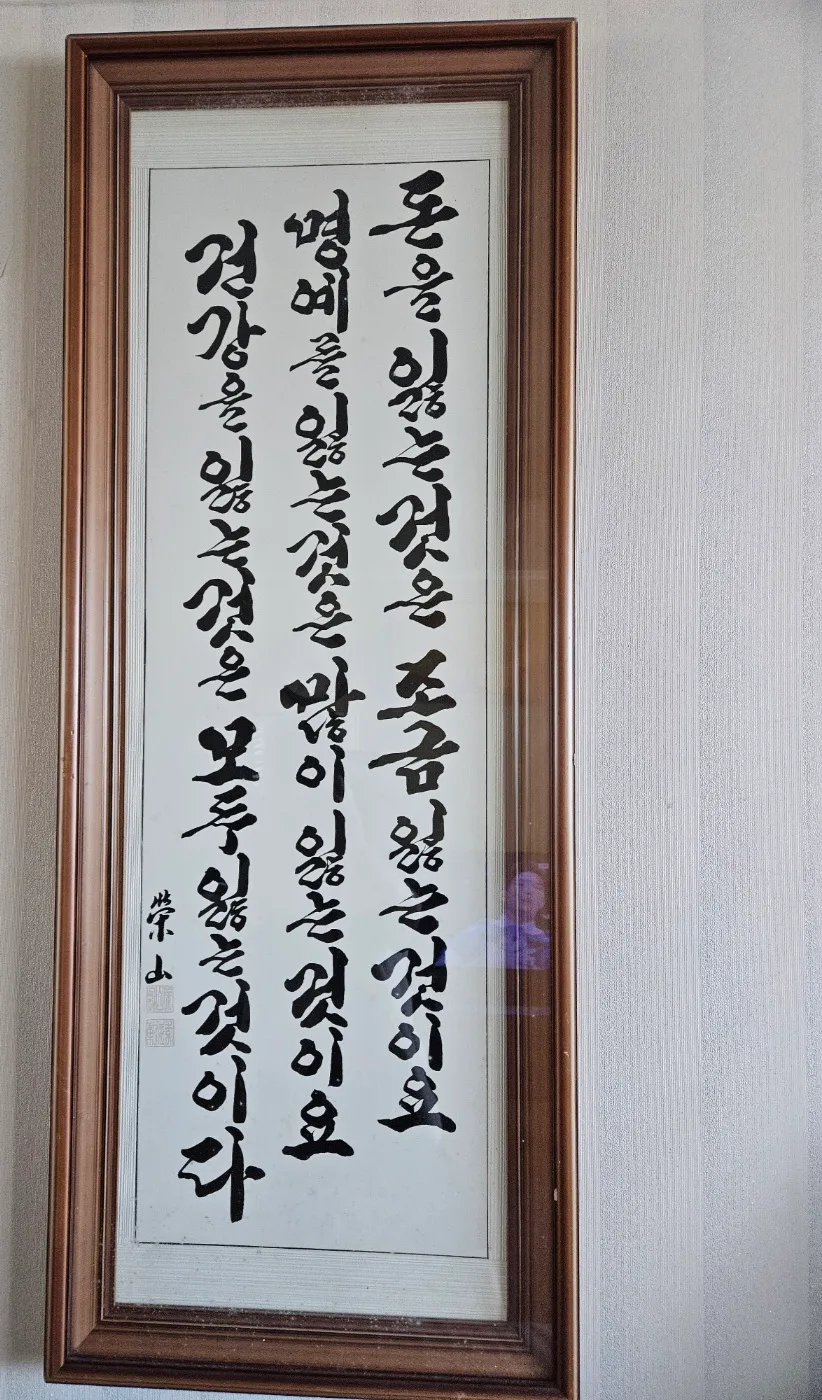 돈을 잃는것은 조금 잃는것이요
명예를 잃는것은 많이 잃는것이요
건강을 잃는것은 모두 잃는것이다
榮山